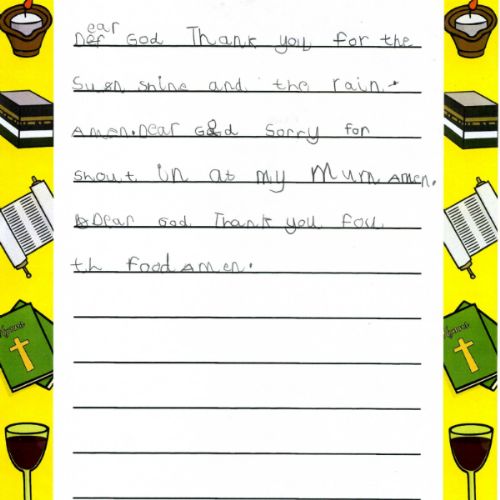 Dear God Thank you for the
Sush shine and the rain.
Amen. Dear God Sorry for
shout in at my Mum Amen.
Dear God Thank you fou
th food Amen.
Hymns
Hymns